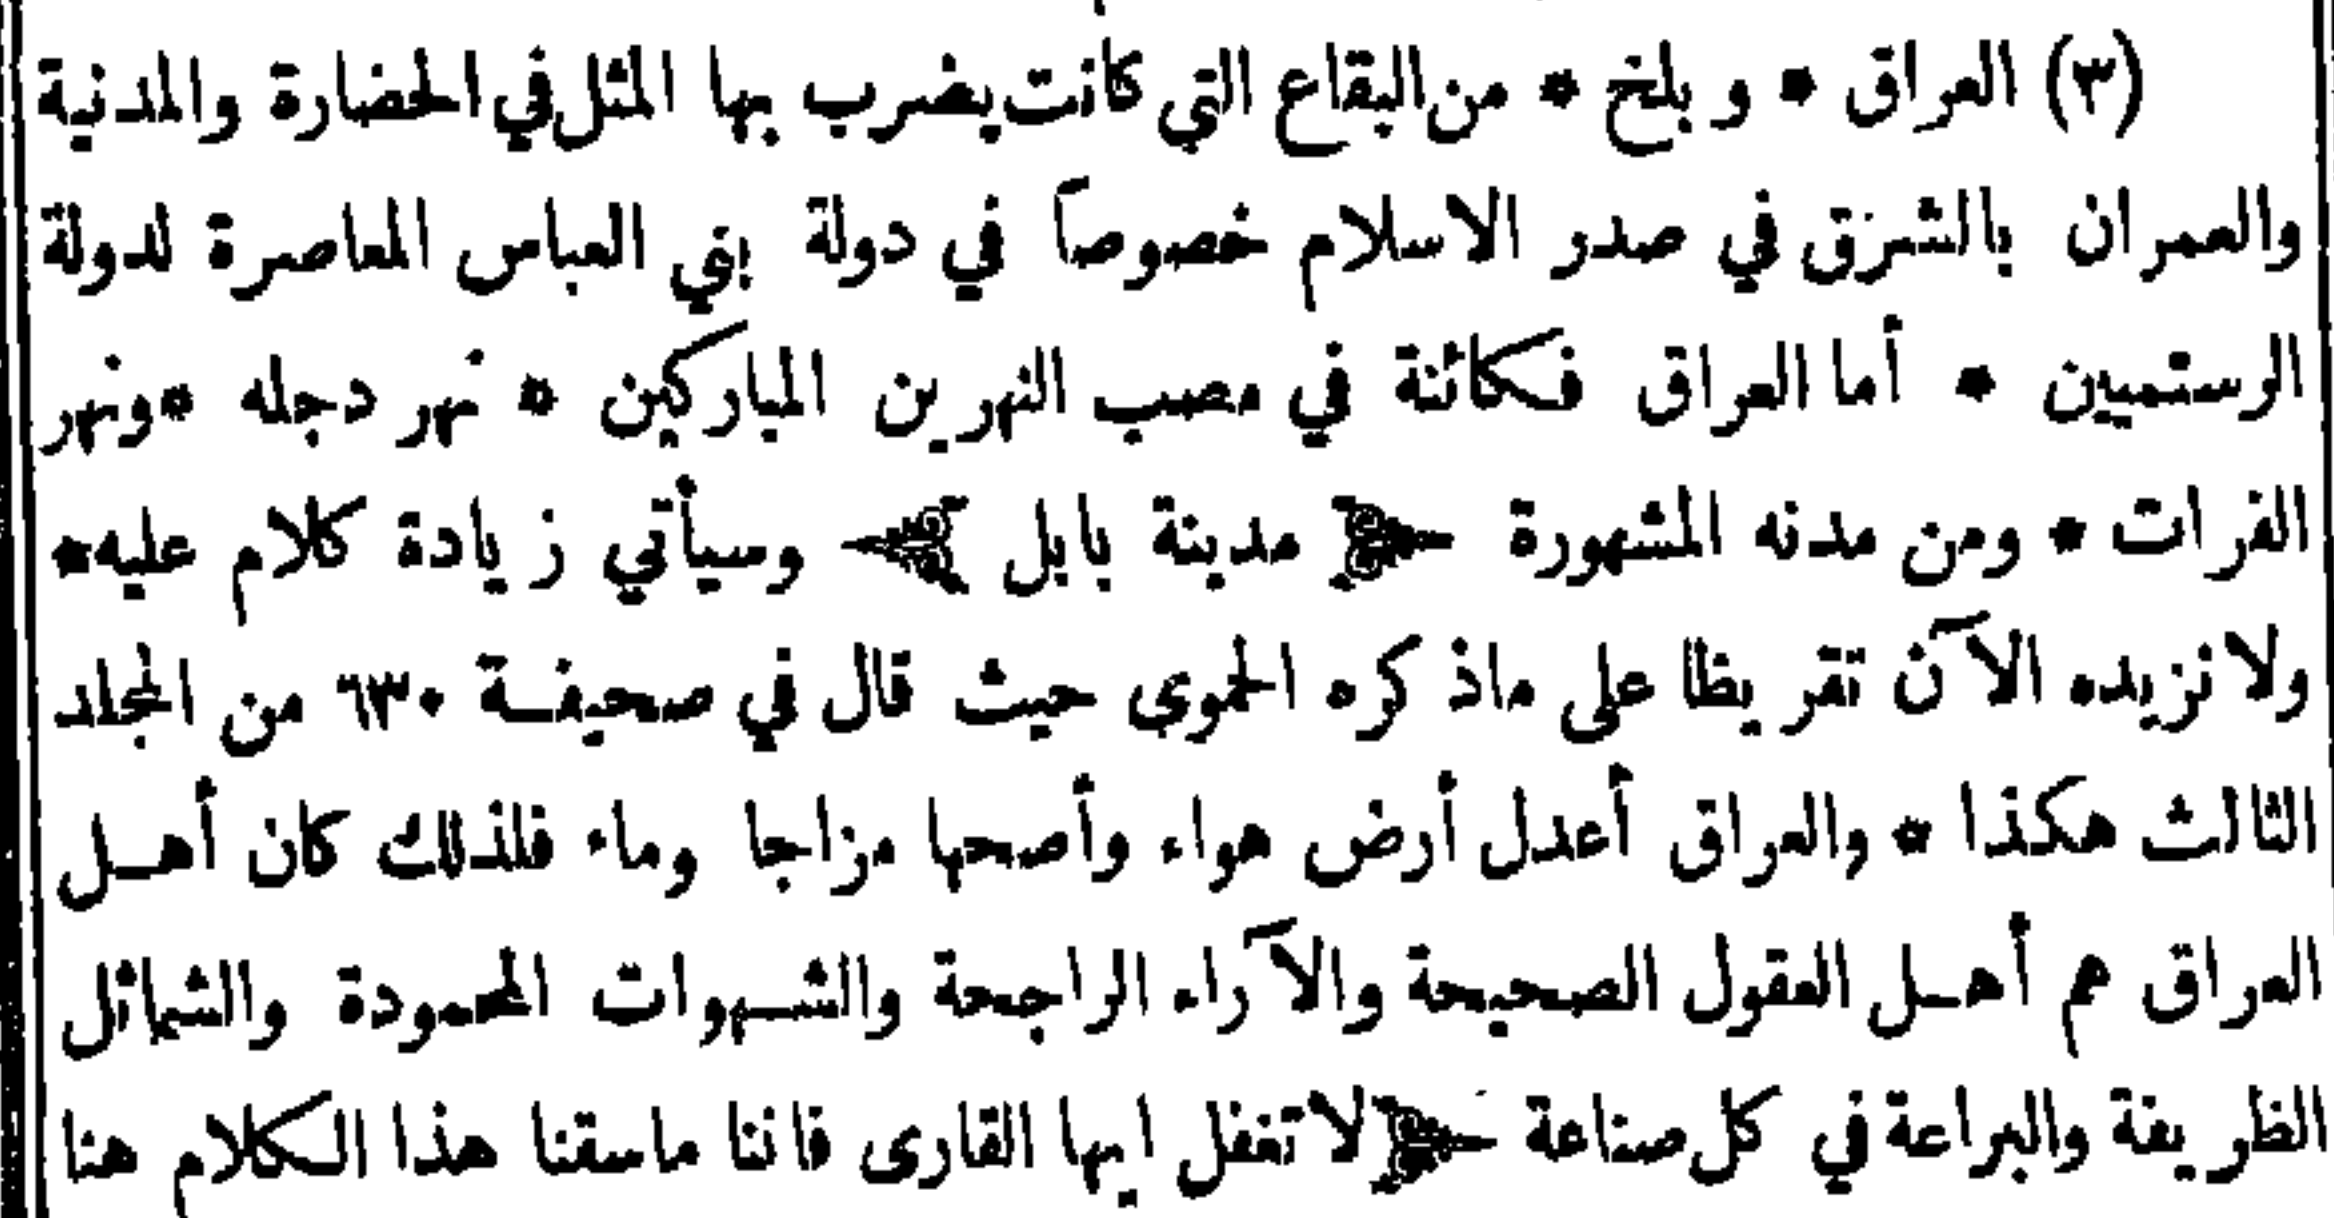 (٣) العراق * و بلخ * من البقاع التي كانت يضرب بها المثل في الحضارة والمدنية
والعمران بالشرق في صدر الاسلام خصوصاً في دولة بني العباس المعاصرة لدولة
الرستميين * أما العراق فكائنة في مصب النهرين المباركين * نهر دجله * ونهر
الفرات * ومن مدنه المشهورة ﴿ مدينة بابل ﴾ وسيأتي زيادة كلام عليه *
ولا نزيده الآن تقريظا على ماذكره الحموى حيث قال في صحيفة ٦٣٠ من المجلد
الثالث هكذا * والعراق أعدل أرض هواء وأصحها مزاجا وماء فلذلك كان أهل
العراق هم أهل العقول الصحيحة والآراء الراجحة والشهوات المحمودة والشمائل
الظريفة والبراعة في كل صناعة ﴿ لا تغفل ايها القارى فاننا ماسقنا هذا الكلام هنا